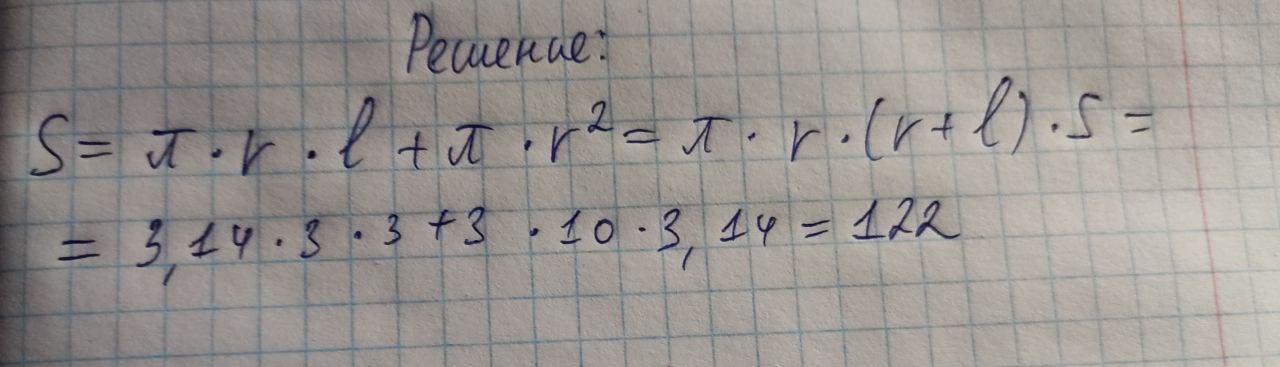 Решение:
S = π · r · l + π · r² = π · r · (r + l) · S =
= 3,14 · 3 · 3 + 3 · 10 · 3,14 = 122